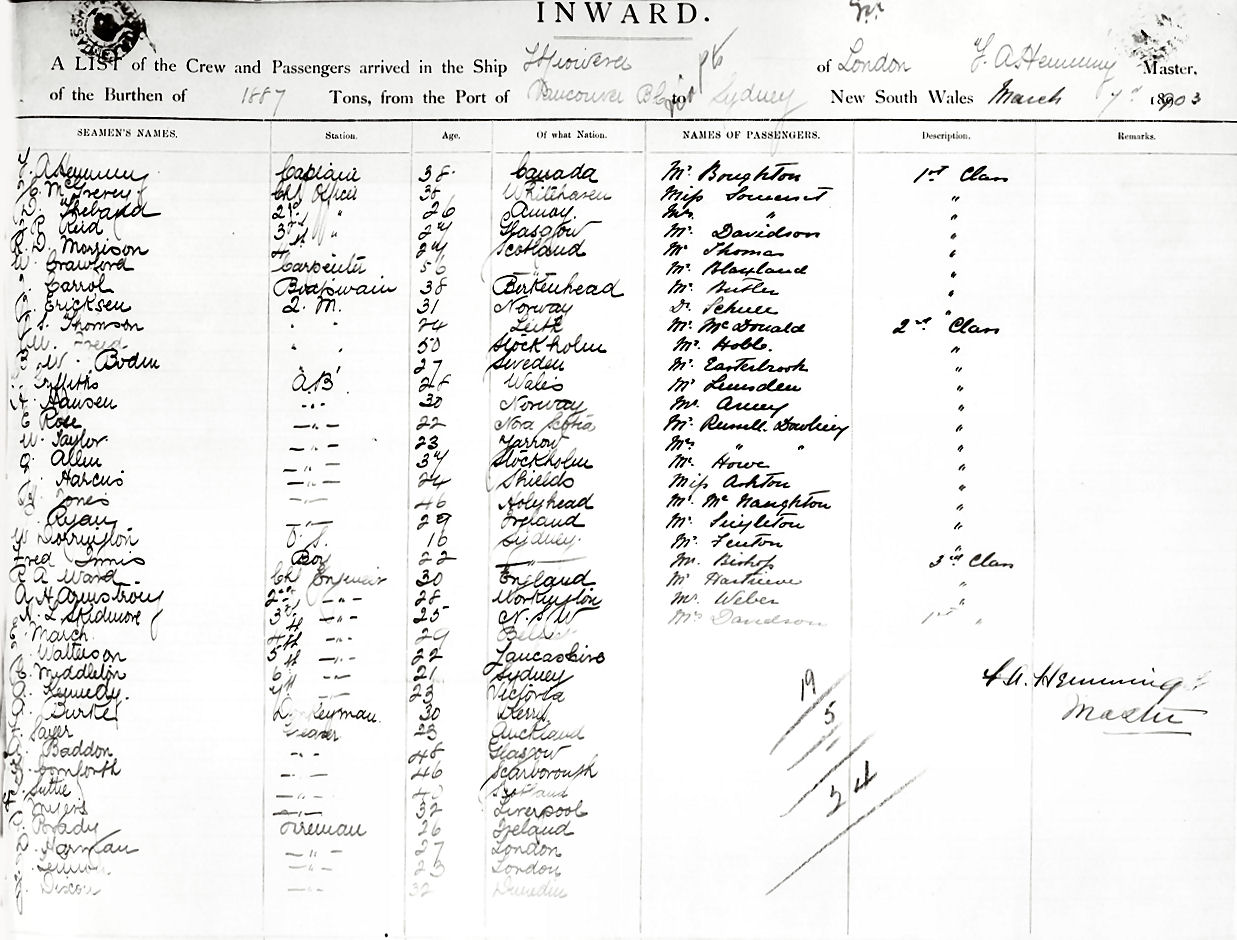 INWARD.
A LIST of the Crew and Passengers arrived in the Ship Miowera of London F. A. Hemming Master,
of the Burthen of 1887 Tons, from the Port of Vancouver B.C. to Sydney New South Wales March 7th 1903
SEAMEN'S NAMES. Station. Age. Of what Nation. NAMES OF PASSENGERS. Description. Remarks.
F. A. Hemming Captain 38 Canada Mr. Boughton 1st Class
Chf Officer 38 Whitehaven Miss Somerset "
2nd " 26 Amoy Mrs "  "
Reid 3rd " 27 Glasgow Mr. Davidson "
R. D. Morrison 4th " 24 Scotland Mr Thomas "
W. Crawford Carpenter 56 " Mr. Blayland "
Carrol Boatswain 38 Birkenhead Mr. Butler "
Ericksen Q. M. 31 Norway Dr. "
Thomson " " 24 Leith Mr. McDonald 2nd Class
" " 50 Stockholm Mr. Hoble. "
W. Bodin 27 Sweden Mr. Easterbrook "
Griffiths A.B. 28 Wales Mr Lumsden "
Hansen -"- 30 Norway "
E. Rose -"- 22 Nova Scotia Mr. Russell Dowling "
W. Taylor -"- 23 Yarrow Mrs " " "
Allen -"- 37 Stockholm Mr. Howe "
Harcus -"- 24 Shields Miss Ashton "
Jones -"- 46 Holyhead Mr. McNaughton "
Ryan -"- 29 Ireland Mr. Singleton "
W. Dorrington O.S. 16 Sydney Mr. Fenton "
Fred Innis Boy 22 -"- Mr. Bishop 3rd Class
R. A. Ward Chf Engineer 30 England Mr "
A. H. Armstrong 2nd -"- 28 Workington Mr. Weber "
N. L. Skidmore 3rd -"- 25 N.S.W Mrs Davidson 1st "
March 4th -"- 29
Watterson 5th -"- 22 Lancashire
C. Middleton 6th -"- 21 Sydney
Kennedy. 7th -"- 23 Victoria
F. A. Hemming
Master
Burke Donkeyman 30 Kerry
Sayer Greaser 23 Auckland
Baddon -"- 48 Glasgow
Cornforth -"- 46 Scarborough
Suttie -"- Scotland
Myers -"- 32 Liverpool
Brady Fireman 26 Ireland
Norman -"- 27 London
-"- 23 London
-"- 32 Dunedin
19
5
24